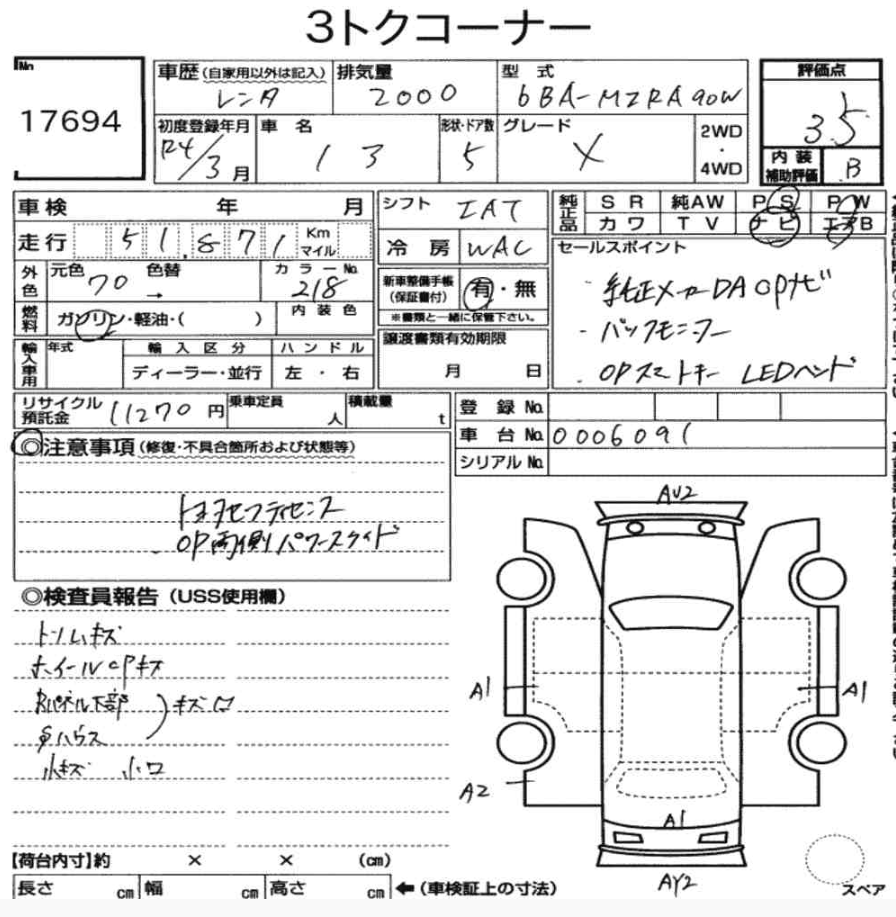 3トクコーナー
No
17694
車歴 (自家用以外は記入)
レンタ
排気量
2000
型式
6BA-MZRA90W
評価点
3.5
初度登録年月
R4/3月
車名
13
形状・ドア数
5
グレード
X
2WD
・
4WD
内装
補助評価
B
車検 年 月
走行 51,871 Km
マイル
シフト
IAT
冷房
WAC
純正品
SR 純AW PS PW
カワ TV ナビ エアB
外色
元色
70
色替
→
カラーNo.
218
新車整備手帳
(保証書付)
有・無
※書類と一緒に保管下さい。
セールスポイント
・純正メーカーDAOPナビ
・バックモニター
・OPスマートキー LEDヘッド
燃料
ガソリン・軽油・( )
内装色
譲渡書類有効期限
月 日
輸入車用
年式
輸入区分
ディーラー・並行
ハンドル
左・右
リサイクル
預託金
11270円
乗車定員
人
積載量
t
登録No.
車台No. 0006091
シリアルNo.
◎注意事項 (修復・不具合箇所および状態等)
トヨタセフティセンス
・OP両側パワースライド
◎検査員報告 (USS使用欄)
トリムキズ
ホイールcpキズ
Rパネル下部
キズ凹
Sハウス
小キズ 小凹
AU2
A1
A1
A2
A1
AY2
スペア
【荷台内寸】約 × × (cm)
長さ cm 幅 cm 高さ cm ←(車検証上の寸法)